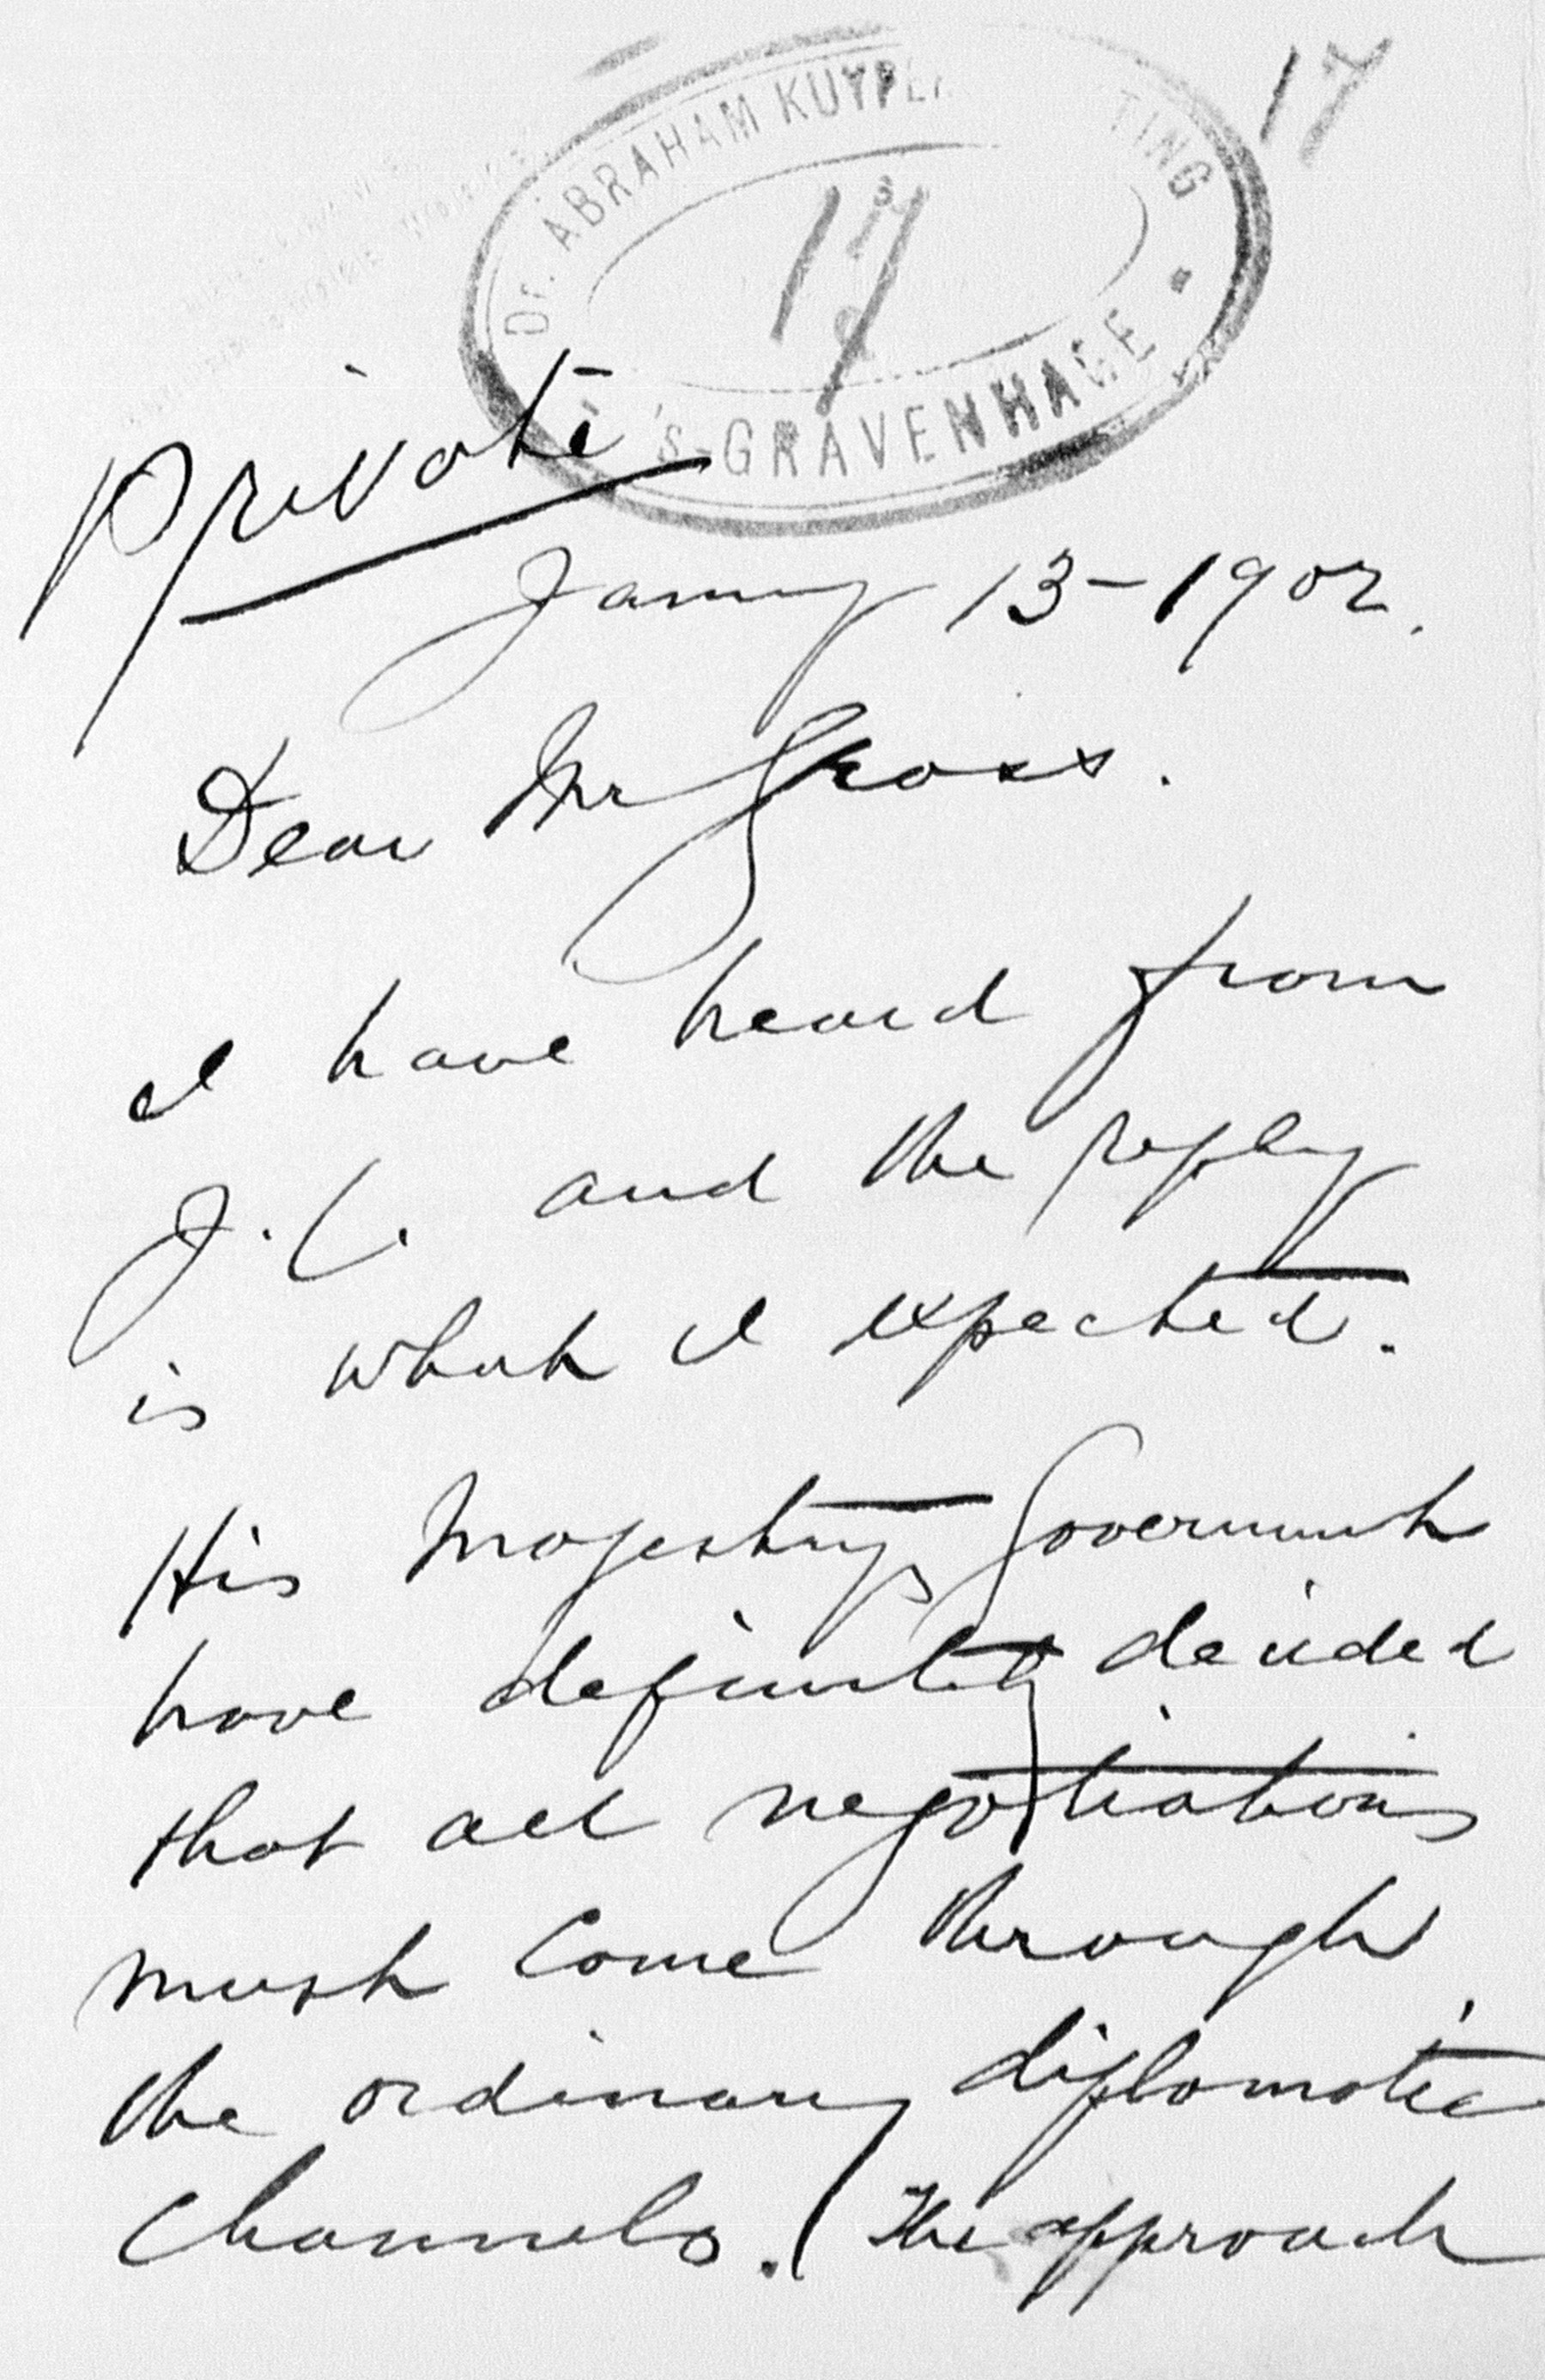 17
Dr. ABRAHAM KUYPE TING
17
's-GRAVENHAGE
Private
Jany 13-1902.
Dear Mr Gross.
I have heard from
J.C. and the reply
is what I expected.
His Majestys Government
have definitely decided
that all negotiations
must come through
the ordinary diplomatic
Channels. The approach